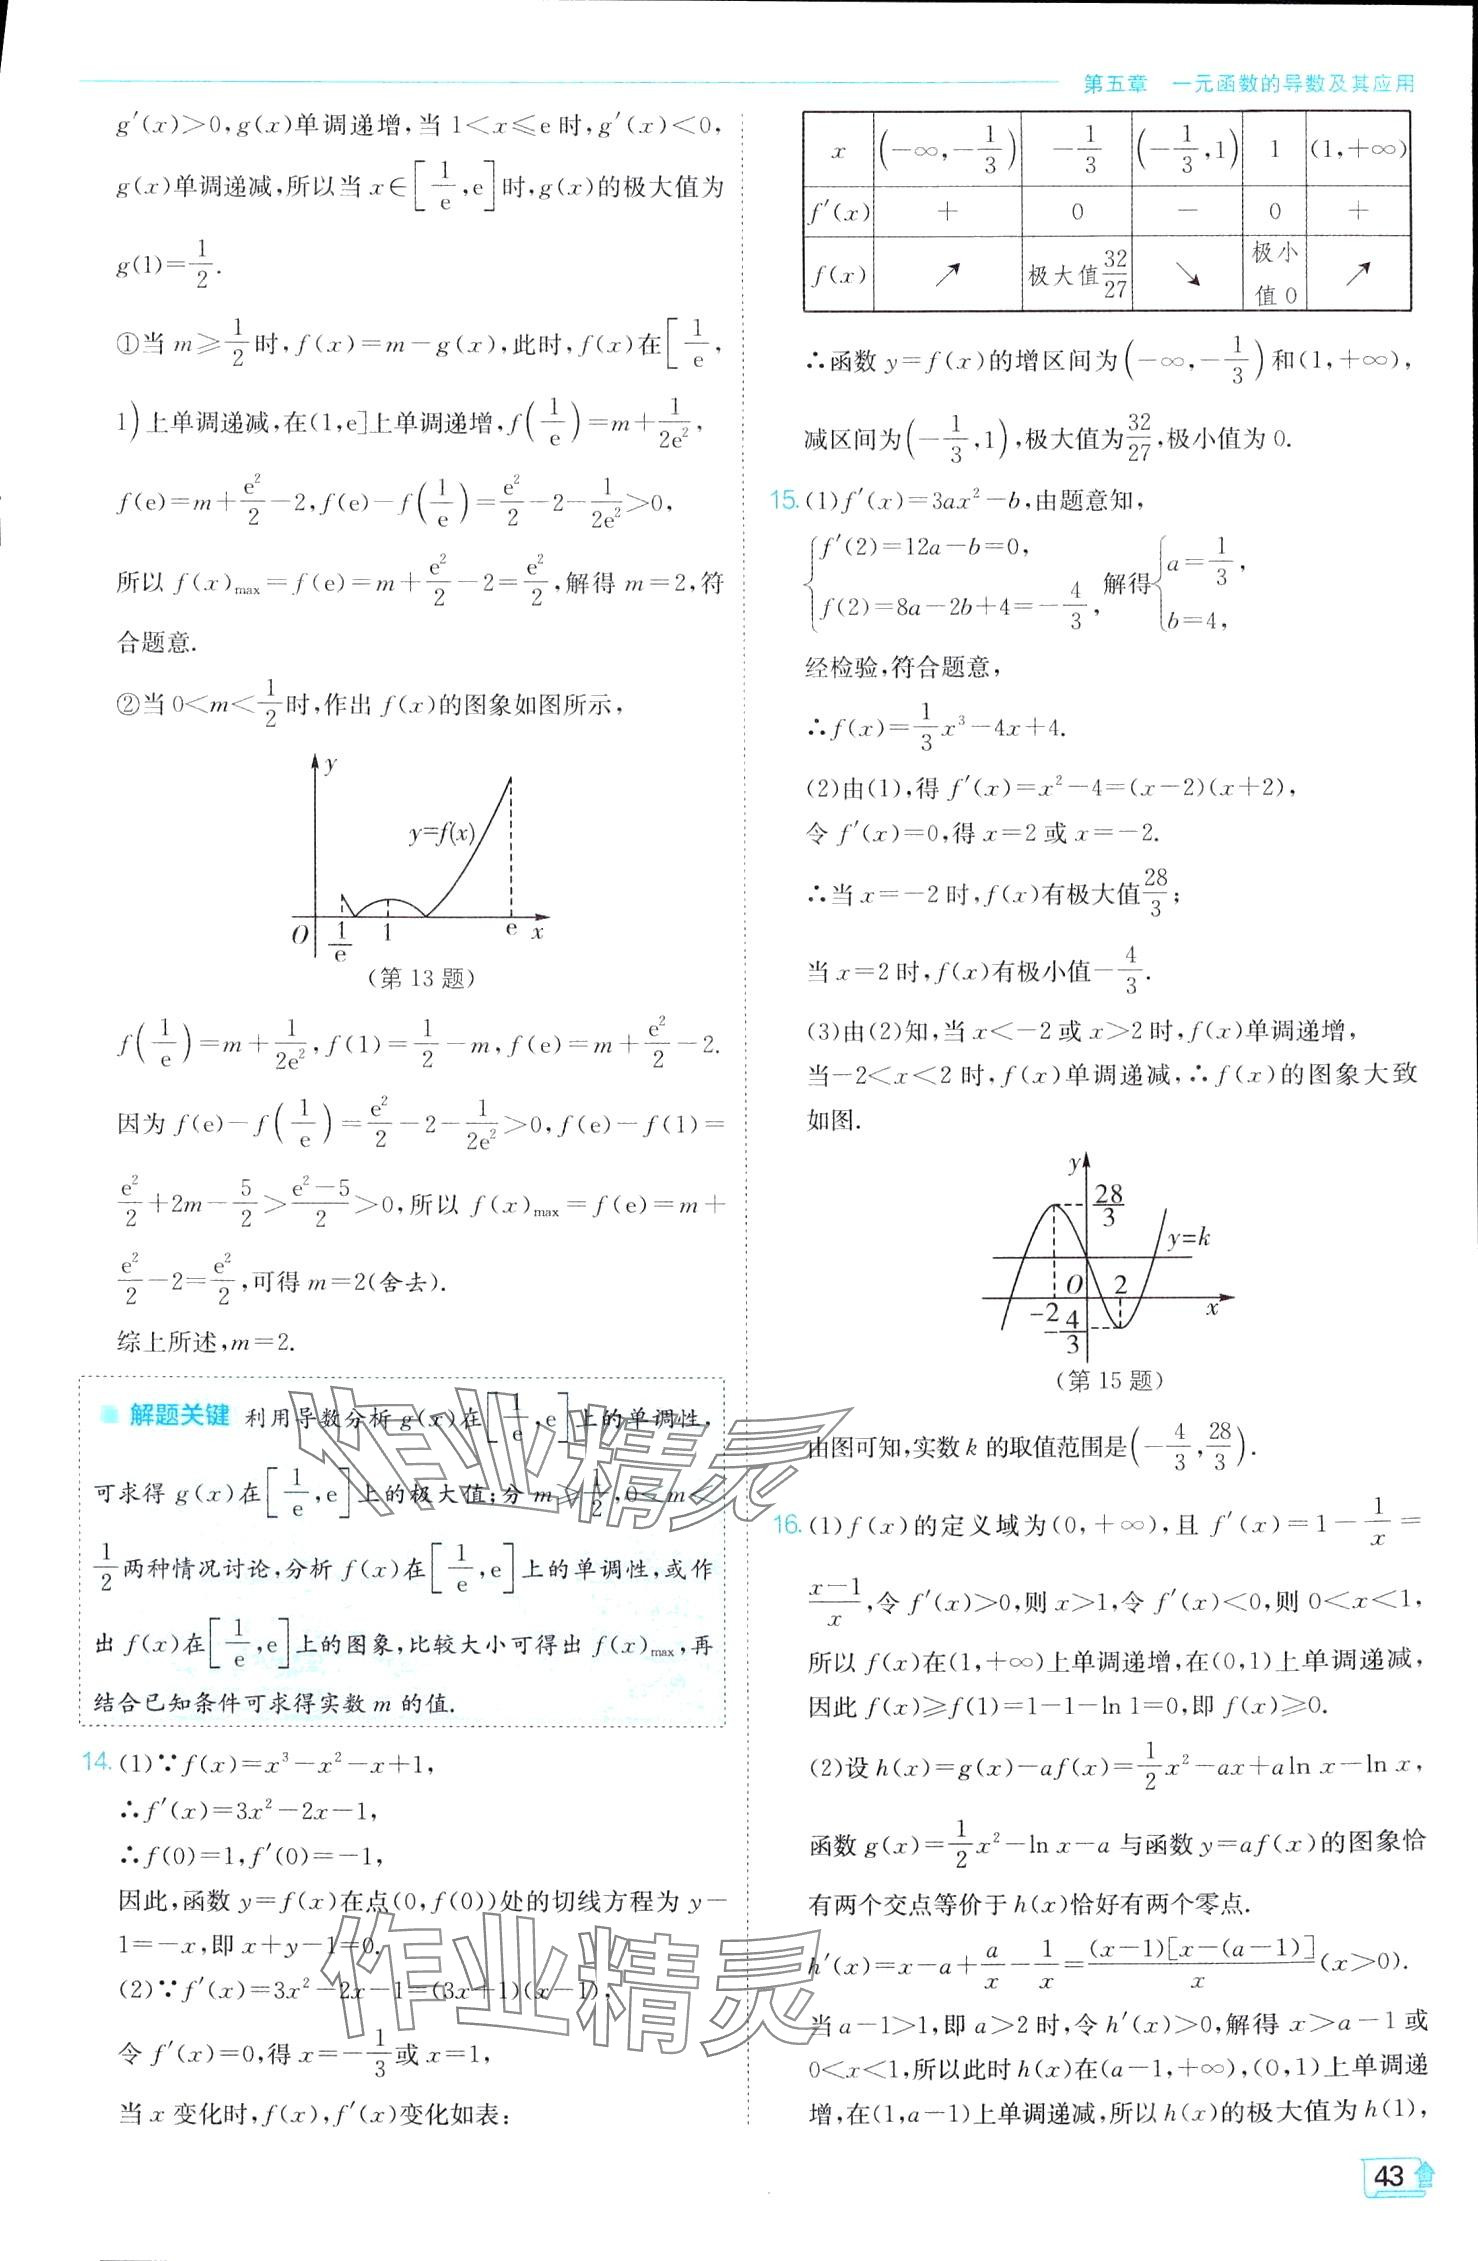 第五章 一元函数的导数及其应用
g′(x)>0,g(x)单调递增,当1<x≤e时,g′(x)<0,
g(x)单调递减,所以当x∈[1/e,e]时,g(x)的极大值为
g(1)=1/2.
①当m≥1/2时,f(x)=m-g(x),此时,f(x)在[1/e,
1)上单调递减,在(1,e]上单调递增,f(1/e)=m+1/(2e²),
f(e)=m+e²/2-2,f(e)-f(1/e)=e²/2-2-1/(2e²)>0,
所以f(x)max=f(e)=m+e²/2-2=e²/2,解得m=2,符
合题意.
②当0<m<1/2时,作出f(x)的图象如图所示,
y
y=f(x)
O 1/e 1 e x
(第13题)
f(1/e)=m+1/(2e²),f(1)=1/2-m,f(e)=m+e²/2-2.
因为f(e)-f(1/e)=e²/2-2-1/(2e²)>0,f(e)-f(1)=
e²/2+2m-5/2>(e²-5)/2>0,所以f(x)max=f(e)=m+
e²/2-2=e²/2,可得m=2(舍去).
综上所述,m=2.
解题关键 利用导数分析g(x)在[1/e,e]上的单调性,
可求得g(x)在[1/e,e]上的极大值;分m≥1/2,0<m<
1/2两种情况讨论,分析f(x)在[1/e,e]上的单调性,或作
出f(x)在[1/e,e]上的图象,比较大小可得出f(x)max,再
结合已知条件可求得实数m的值.
14.(1)∵f(x)=x³-x²-x+1,
∴f′(x)=3x²-2x-1,
∴f(0)=1,f′(0)=-1,
因此,函数y=f(x)在点(0,f(0))处的切线方程为y-
1=-x,即x+y-1=0.
(2)∵f′(x)=3x²-2x-1=(3x+1)(x-1),
令f′(x)=0,得x=-1/3或x=1,
当x变化时,f(x),f′(x)变化如表:
x (-∞,-1/3) -1/3 (-1/3,1) 1 (1,+∞)
f′(x) + 0 - 0 +
f(x) ↗ 极大值32/27 ↘ 极小值0 ↗
∴函数y=f(x)的增区间为(-∞,-1/3)和(1,+∞),
减区间为(-1/3,1),极大值为32/27,极小值为0.
15.(1)f′(x)=3ax²-b,由题意知,
{f′(2)=12a-b=0, f(2)=8a-2b+4=-4/3, 解得{a=1/3, b=4,
经检验,符合题意,
∴f(x)=1/3x³-4x+4.
(2)由(1),得f′(x)=x²-4=(x-2)(x+2),
令f′(x)=0,得x=2或x=-2.
∴当x=-2时,f(x)有极大值28/3;
当x=2时,f(x)有极小值-4/3.
(3)由(2)知,当x<-2或x>2时,f(x)单调递增,
当-2<x<2时,f(x)单调递减,∴f(x)的图象大致
如图.
y
28/3
y=k
O 2
-2 x
-4/3
(第15题)
由图可知,实数k的取值范围是(-4/3,28/3).
16.(1)f(x)的定义域为(0,+∞),且f′(x)=1-1/x=
(x-1)/x,令f′(x)>0,则x>1,令f′(x)<0,则0<x<1,
所以f(x)在(1,+∞)上单调递增,在(0,1)上单调递减,
因此f(x)≥f(1)=1-1-ln 1=0,即f(x)≥0.
(2)设h(x)=g(x)-af(x)=1/2x²-ax+aln x-ln x,
函数g(x)=1/2x²-ln x-a与函数y=af(x)的图象恰
有两个交点等价于h(x)恰好有两个零点.
h′(x)=x-a+a/x-1/x=(x-1)[x-(a-1)]/x(x>0).
当a-1>1,即a>2时,令h′(x)>0,解得x>a-1或
0<x<1,所以此时h(x)在(a-1,+∞),(0,1)上单调递
增,在(1,a-1)上单调递减,所以h(x)的极大值为h(1),
43
作业精灵
作业精灵